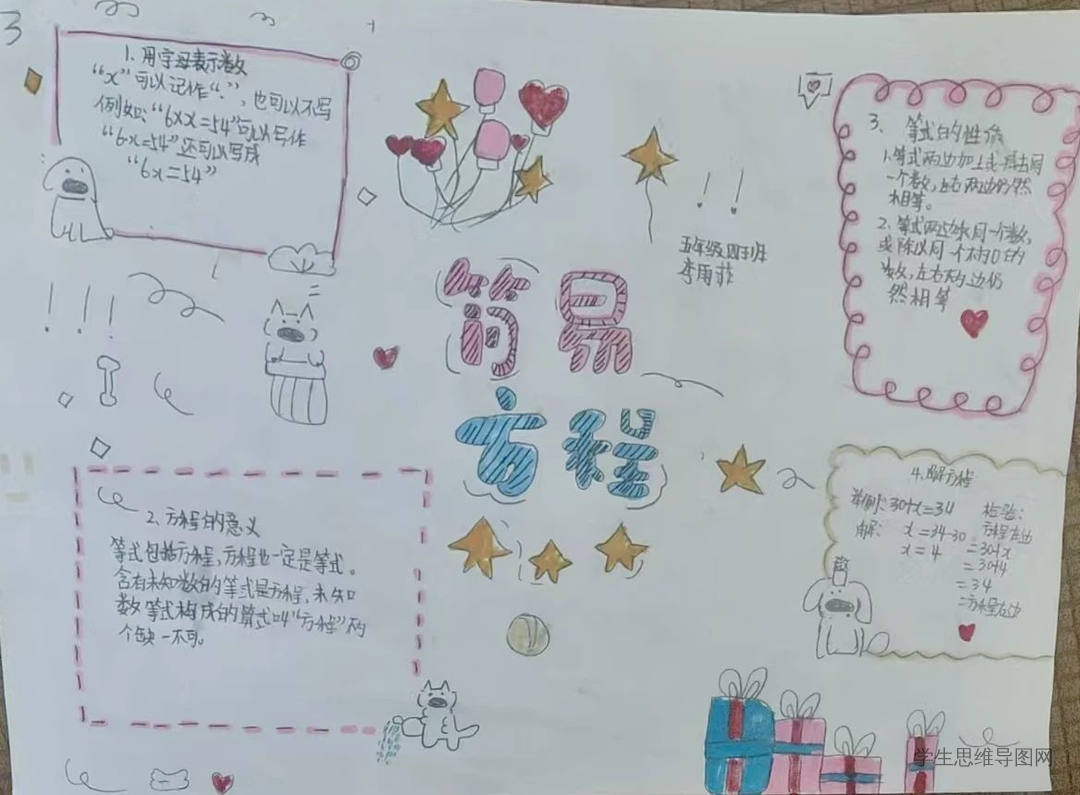 3
1. 用字母表示数
“x”可以记作“·”,也可以不写
例如:“6×x=54”可以写作
“6·x=54”还可以写成
“6x=54”
五年级四班
李雨菲
简易
方程
3. 等式的性质
1.等式两边加上或减去同
一个数,左右两边仍然
相等。
2. 等式两边乘同一个数,
或除以同一个不为0的
数,左右两边仍
然相等
2. 方程的意义
等式包括方程,方程也一定是等式。
含有未知数的等式是方程,未知
数等式构成的算式叫“方程”两
个缺一不可。
4.解方程
举例:30+x=34
解: x=34-30
x=4
检验:
方程左边
=30+x
=30+4
=34
=方程右边
学生思维导图网